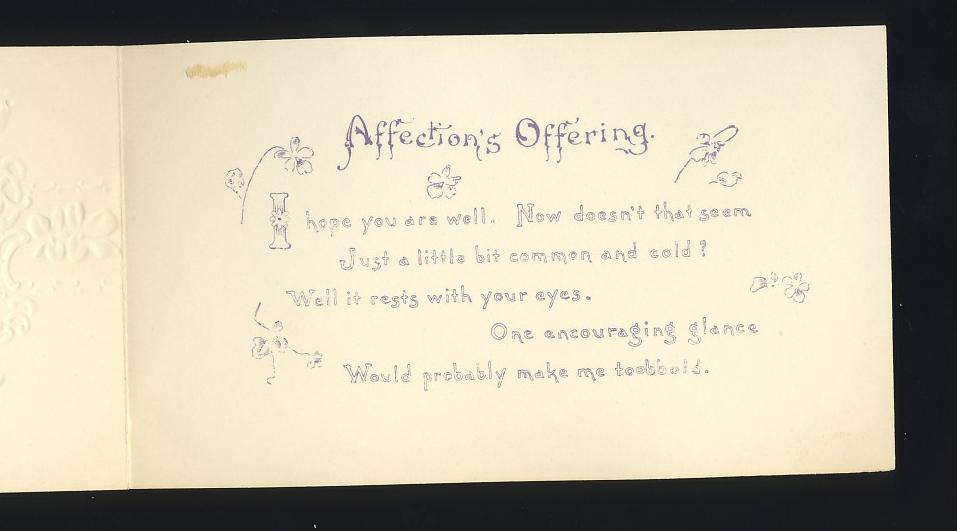 Affection's Offering.
I hope you are well. Now doesn't that seem
Just a little bit common and cold?
Well it rests with your eyes.
One encouraging glance
Would probably make me toobbold.